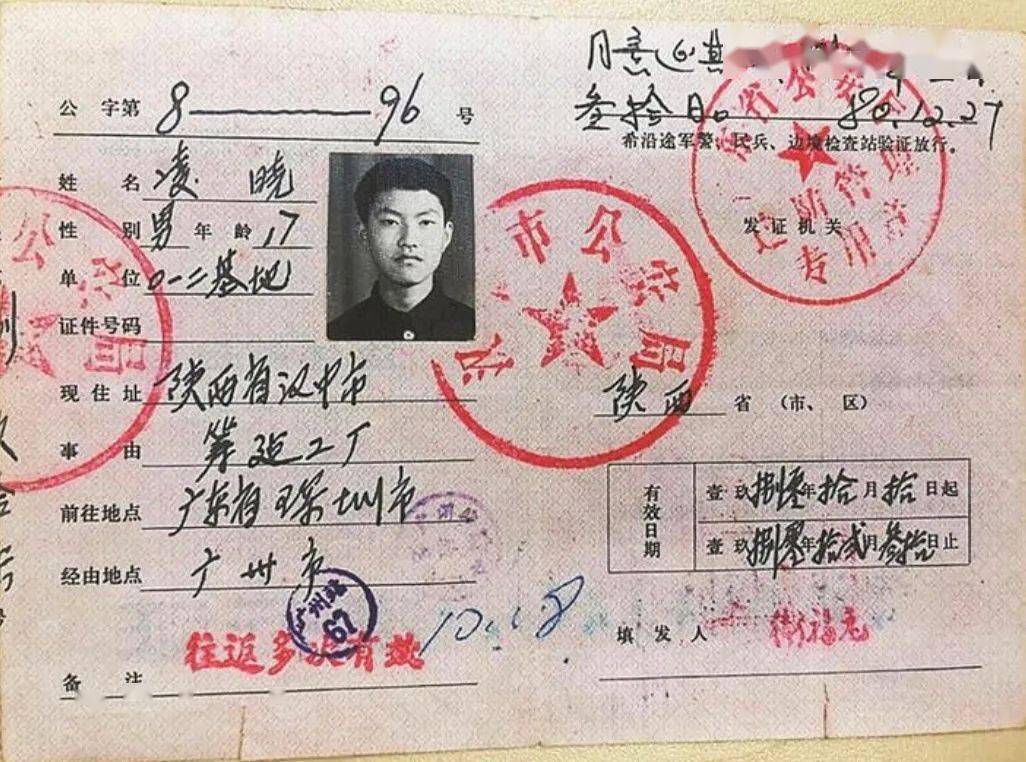 公 字第 8——96 号
姓 名 凌 晓
性 别 男 年 龄 17
单 位 0一二基地
证件号码
现 住 址 陕西省汉中市
事 由 筹建工厂
前往地点 广东省深圳市
经由地点 广州市
广州站
67
往返多次有效
10.18
备 注
同意延其
叁拾日。 80.12.27
希沿途军警、民兵、边境检查站验证放行。
发 证 机 关
省公安
边防管理
专用章
市公安局
公
局
陕西 省 (市、区)
有效日期
壹玖捌零年拾月拾日起
壹玖捌零年拾贰月叁拾日止
填 发 人 福